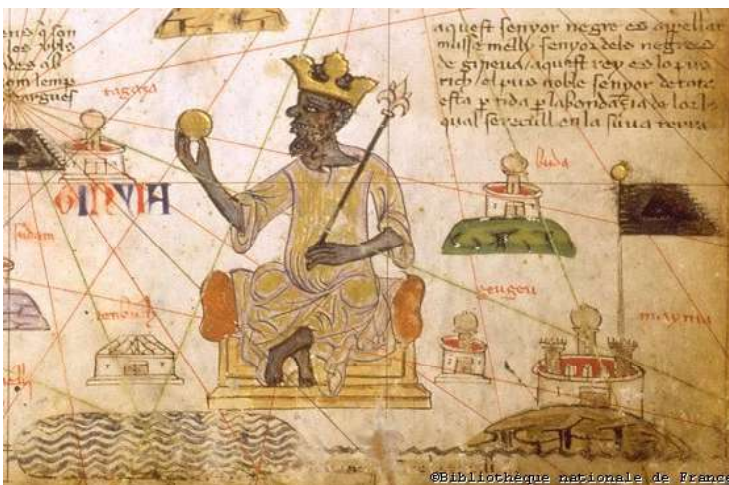 ens q son
om lemp
targues
aquest senyor negre es appellat
musse melly senyor dels negres
de gineua / aquest rey es lo pus
rich / el pus noble senyor de tota
esta ptida p labondaçia de lor lo
qual se recull en la suua terra
tagaza
GINYIA
buda
sudam
tenbuch
geugeu
mayma
©Bibliothèque nationale de France